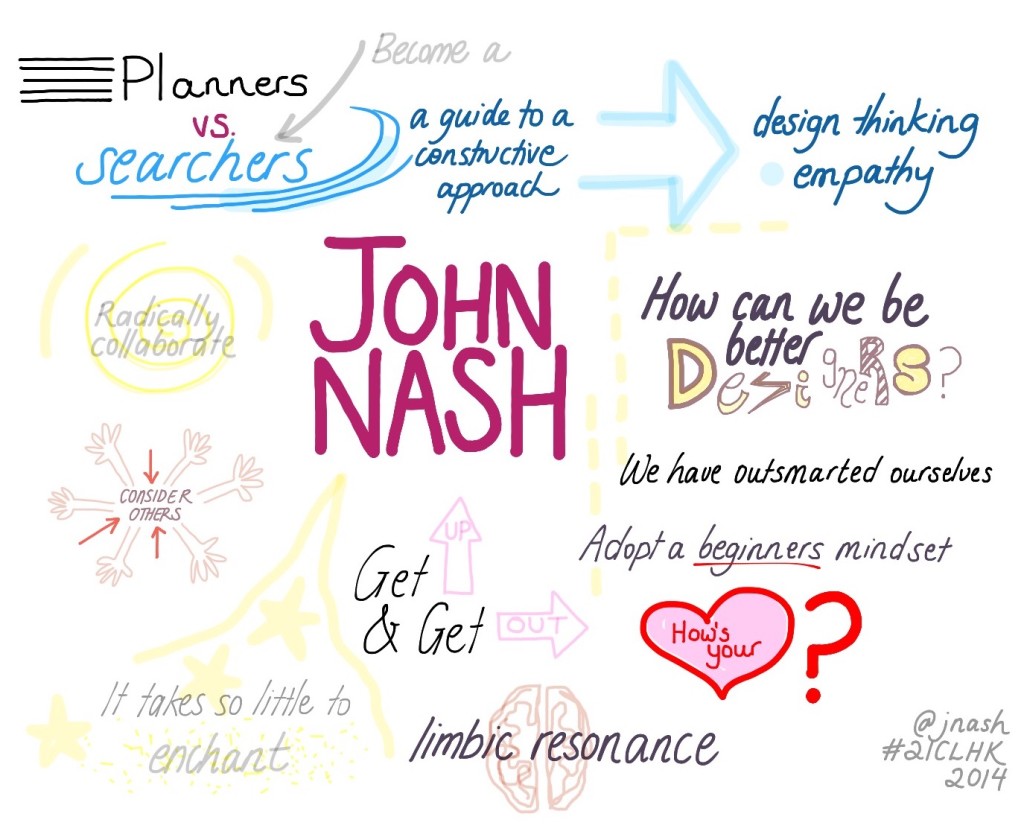 Become a
Planners
vs.
searchers
a guide to a
constuctive
approach
design thinking
empathy
JOHN
NASH
Radically
collaborate
How can we be
better
DesigneRs?
We have outsmarted ourselves
CONSIDER
OTHERS
Adopt a beginners mindset
UP
Get
& Get
OUT
How's
your
?
It takes so little to
enchant
limbic resonance
@jnash
#21CLHK
2014